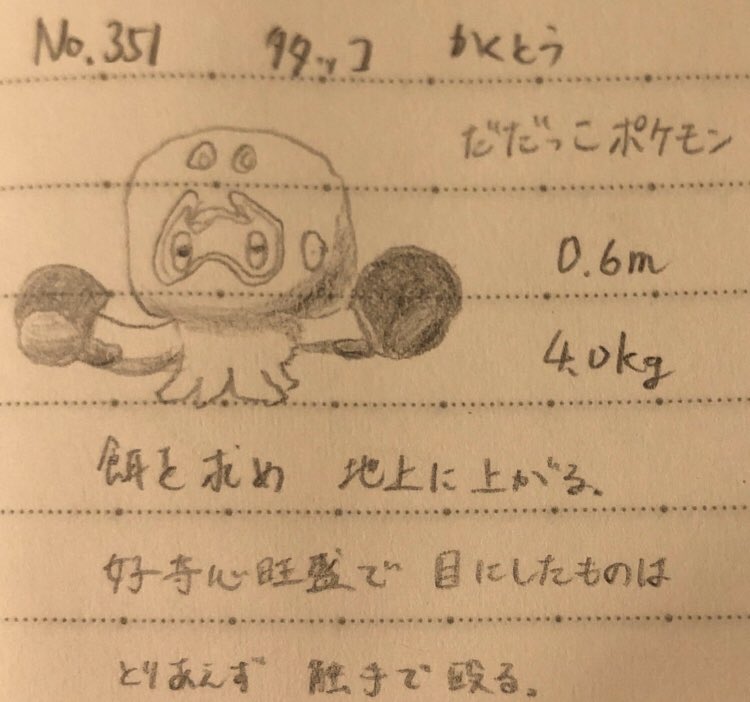 No.351 タタッコ かくとう
だだっこポケモン
0.6m
4.0kg
餌を求め 地上に上がる。
好奇心旺盛で 目にしたものは
とりあえず 触手で殴る。